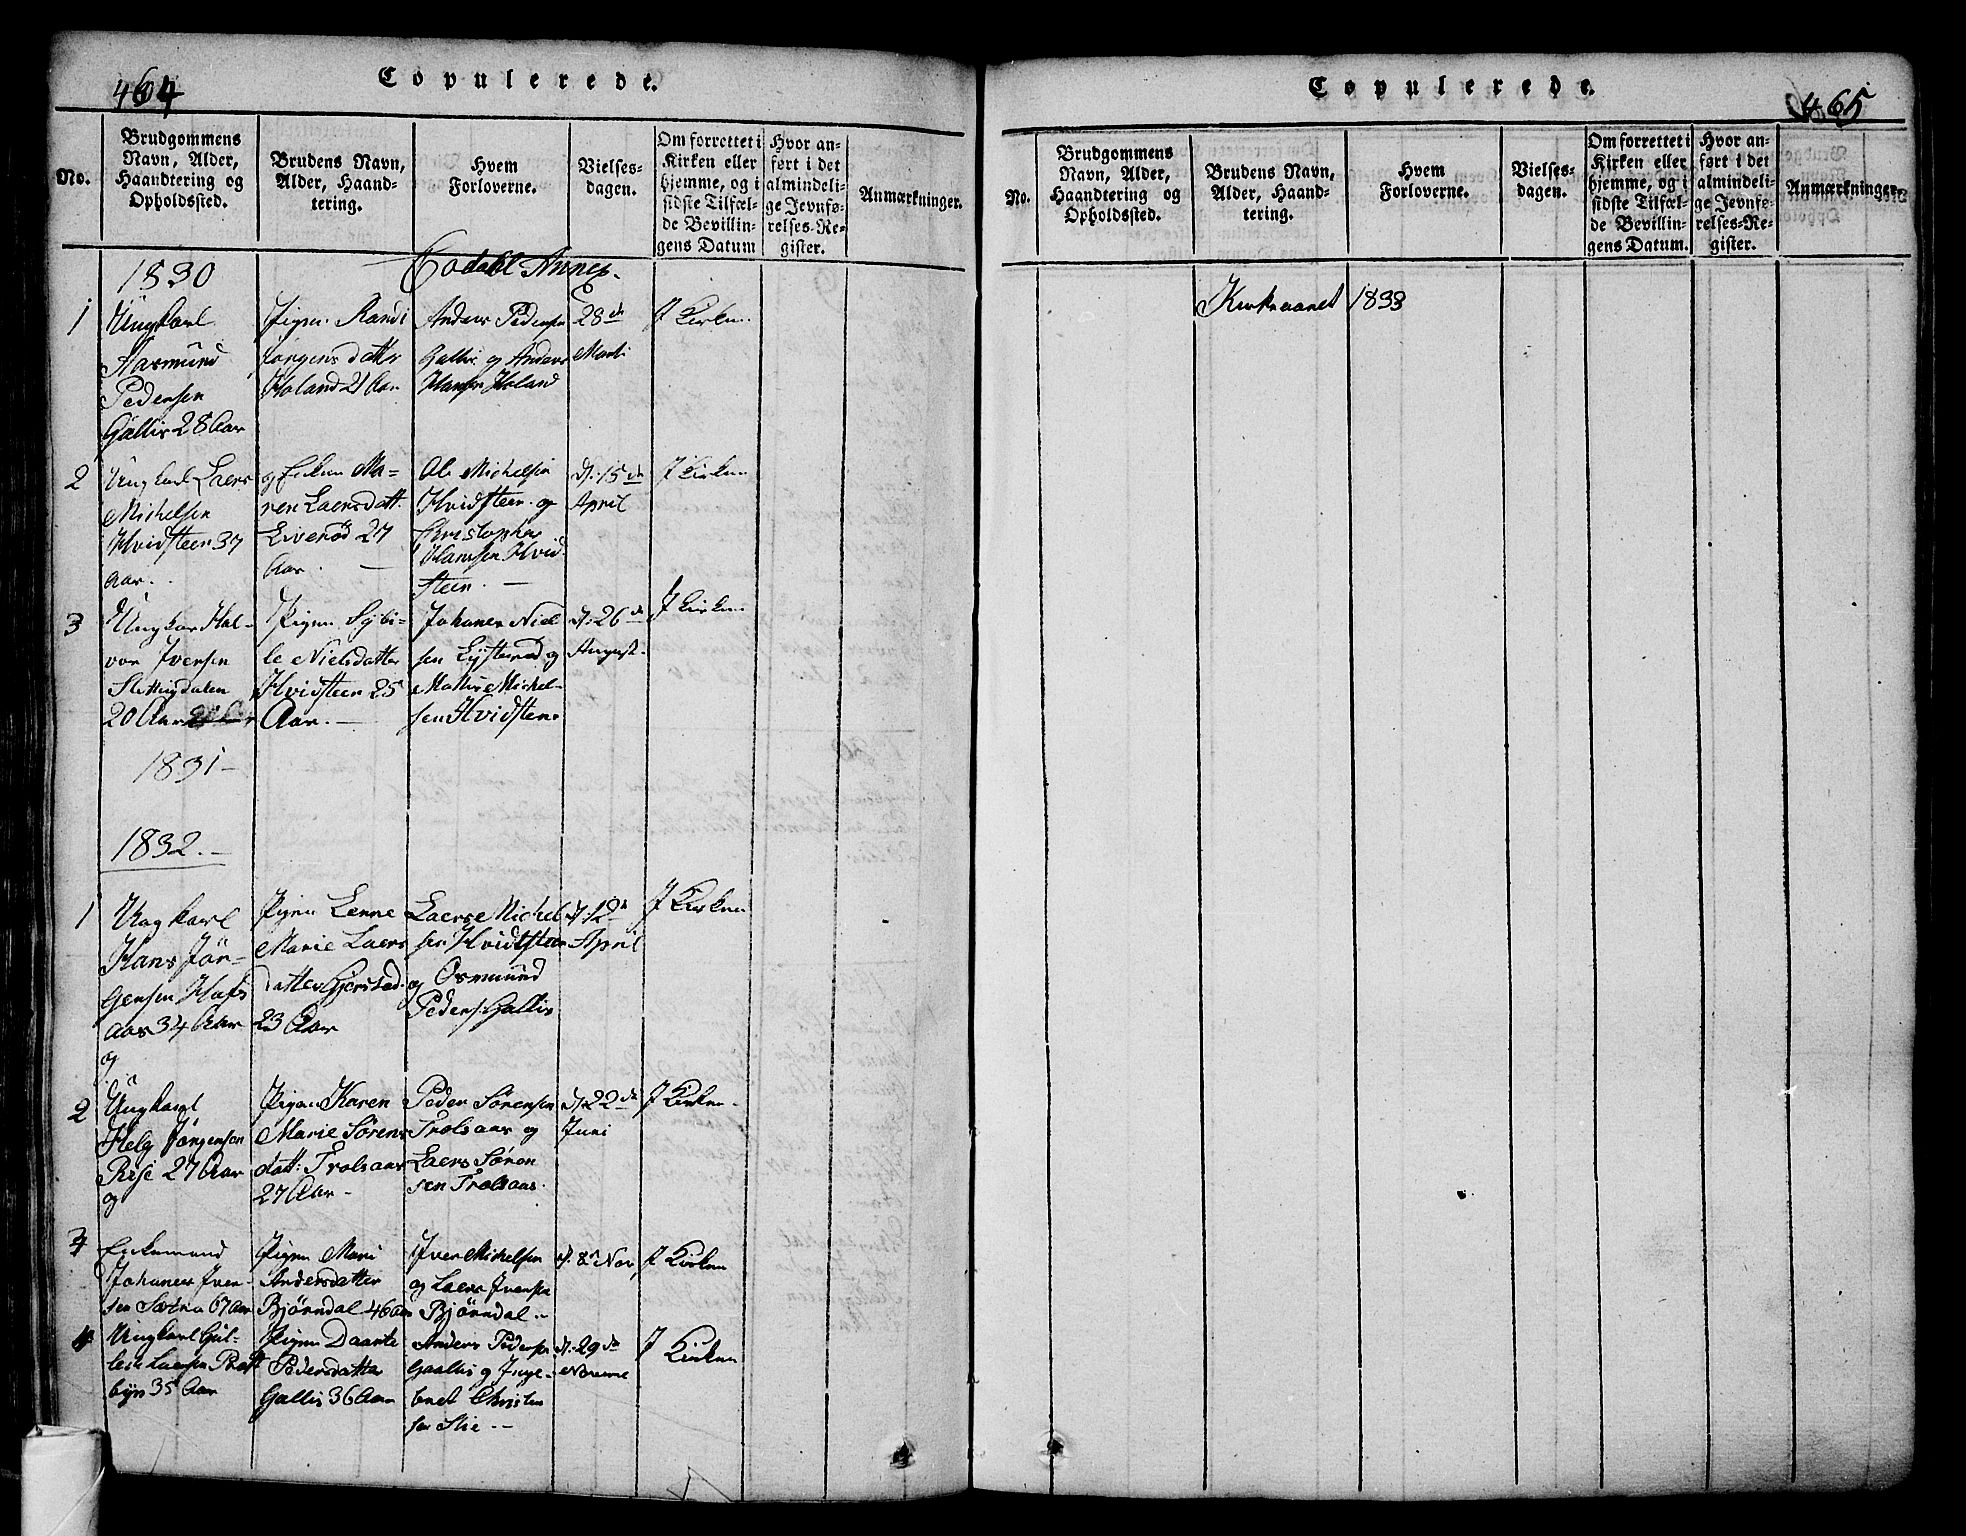 464
Copulerede.
No.
Brudgommens
Navn, Alder,
Haandtering og
Opholdssted.
Brudens Navn,
Alder, Haand-
tering.
Hvem
Forloverne.
Vielses-
dagen.
Om forrettet i
Kirken eller
hjemme, og i
sidste Tilfæl-
de Bevillin-
gens Datum
Hvor an-
ført i det
almindeli-
ge Jevnfø-
relses-Re-
gister.
Anmærkninger.
1830
Annex.
1
Ungkarl
Aasmund
Pedersen
Gallis 28 Aar
Pigen Randi
Jørgensdatter
Holand 21 Aar.
Anders Pedersen
Gallis og Anders
Hansen Holand
28de
Marti
I Kirken
2
Ungkarl Laers
Michelsen
Hvidsteen 37
Aar.
og Enken Ma-
ren Laersdatt.
Liverød 27
Aar. —
Ole Michelsen
Hvidsteen og
Christopher
Hansen Hvid
steen. —
d. 15de
April
I Kirken
3
Ungkar Hal-
vor Iversen
Slettingdalen
20 Aar
Pigen Sybi-
le Nielsdatter
Hvidsteen 25
Aar. —
Johanes Niel
sen Lysterød og
Matis Michel-
sen Hvidsten.
d. 26de
August.
I Kirken
1831 —
1832. —
1
Ungkarl
Hans Jör-
gensen Hafs
aas 34 Aar
og
Pigen Lenne
Marie Laers
Datter Gjerstad
23 Aar
Laers Michel
sen Hvidtsteen
og Osmund
Peders. Gallis
d. 12de
April
I Kirken
2
Ungkarl
Helg Jørgensen
Rise 27 Aar
og
Pigen Karen
Marie Sørens
datt: Trolsaas
27 Aar —
Peder Sørensen
Trolsaas og
Laers Søren
sen Trolsaas.
d. 22de
Juni
I Kirken.
3
Enkemand
Johanes Iver-
sen Sætra 67 Aar
Pigen Mari
Andersdatter
Bjørndal 46 Aar
Iver Michelsen
og Laers Iversen
Bjørndal.
d. 8n Nov
I Kirken
4
Ungkarl Gul-
leik Laersen
35 Aar
Pigen Daarte
Pedersdatter
Gallis 36 Aar
Anders Pedersen
Gaalis og Inge-
bret Christen
sen Slie —
d. 29de
I Kirken
Copulerede.
465
No.
Brudgommens
Navn, Alder,
Haandtering og
Opholdssted.
Brudens Navn,
Alder, Haand-
tering.
Hvem
Forloverne.
Vielses-
dagen.
Om forrettet i
Kirken eller
hjemme, og i
sidste Tilfæl-
de Bevillin-
gens Datum.
Hvor an-
ført i det
almindeli-
ge Jevnfø-
relses-Re-
gister.
Anmærkninger.
Kirkeaaret 1833